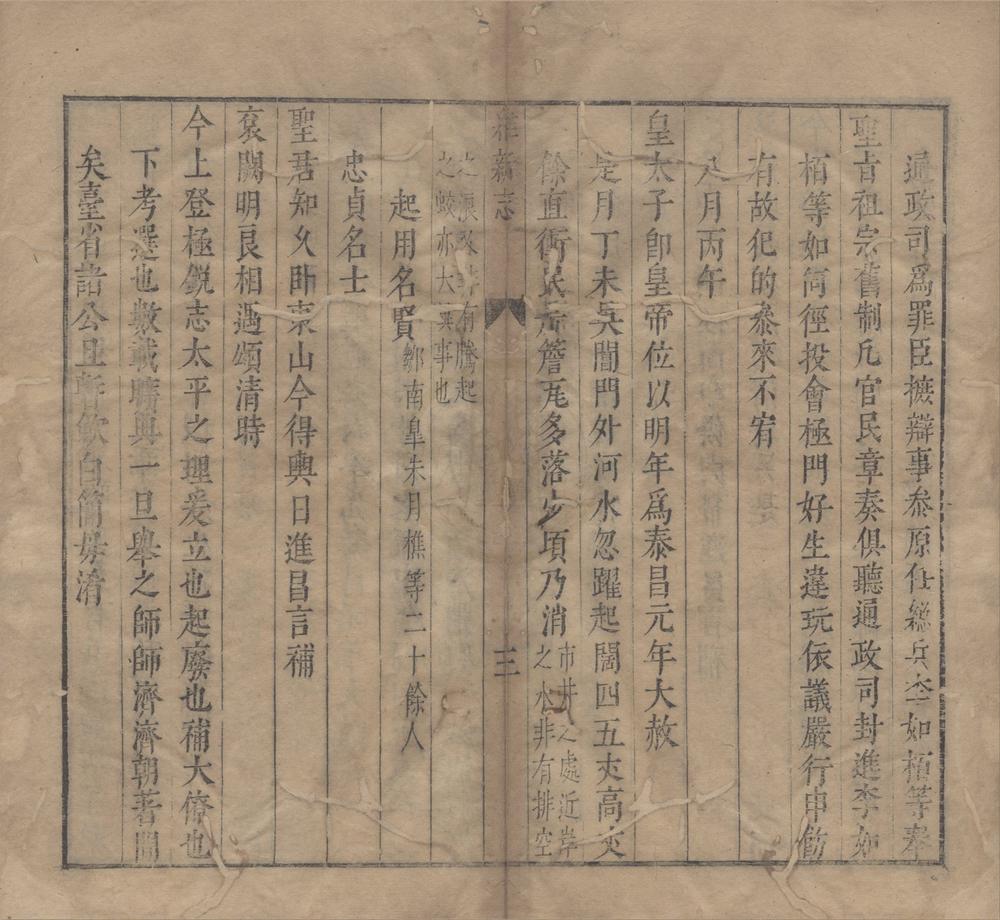 通政司爲罪臣摭辯事叅原任總兵李如栢等奉
聖旨祖宗舊制凡官民章奏俱聽通政司封進李如
栢等如何徑投會極門好生違玩依議嚴行申飭
有故犯的叅來不宥
八月丙午
皇太子卽皇帝位以明年爲泰昌元年大赦
是月丁未吳閶門外河水忽躍起闊四五丈高丈
餘直衝民居簷瓦多落少頃乃消市井之處近岸
之水非有排空
泰新志
三
之浪又非有騰起
之蛟亦大異事也
起用名賢鄒南臯朱月樵等二十餘人
忠貞名士
聖君知久師東山今得輿日進昌言補
袞闕明良相遇頌清時
今上登極銳志太平之理爰立也起廢也補大僚也
下考選也數載曠典一旦舉之師師濟濟朝著間
矣臺省諸公且暫飲白簡毋淆